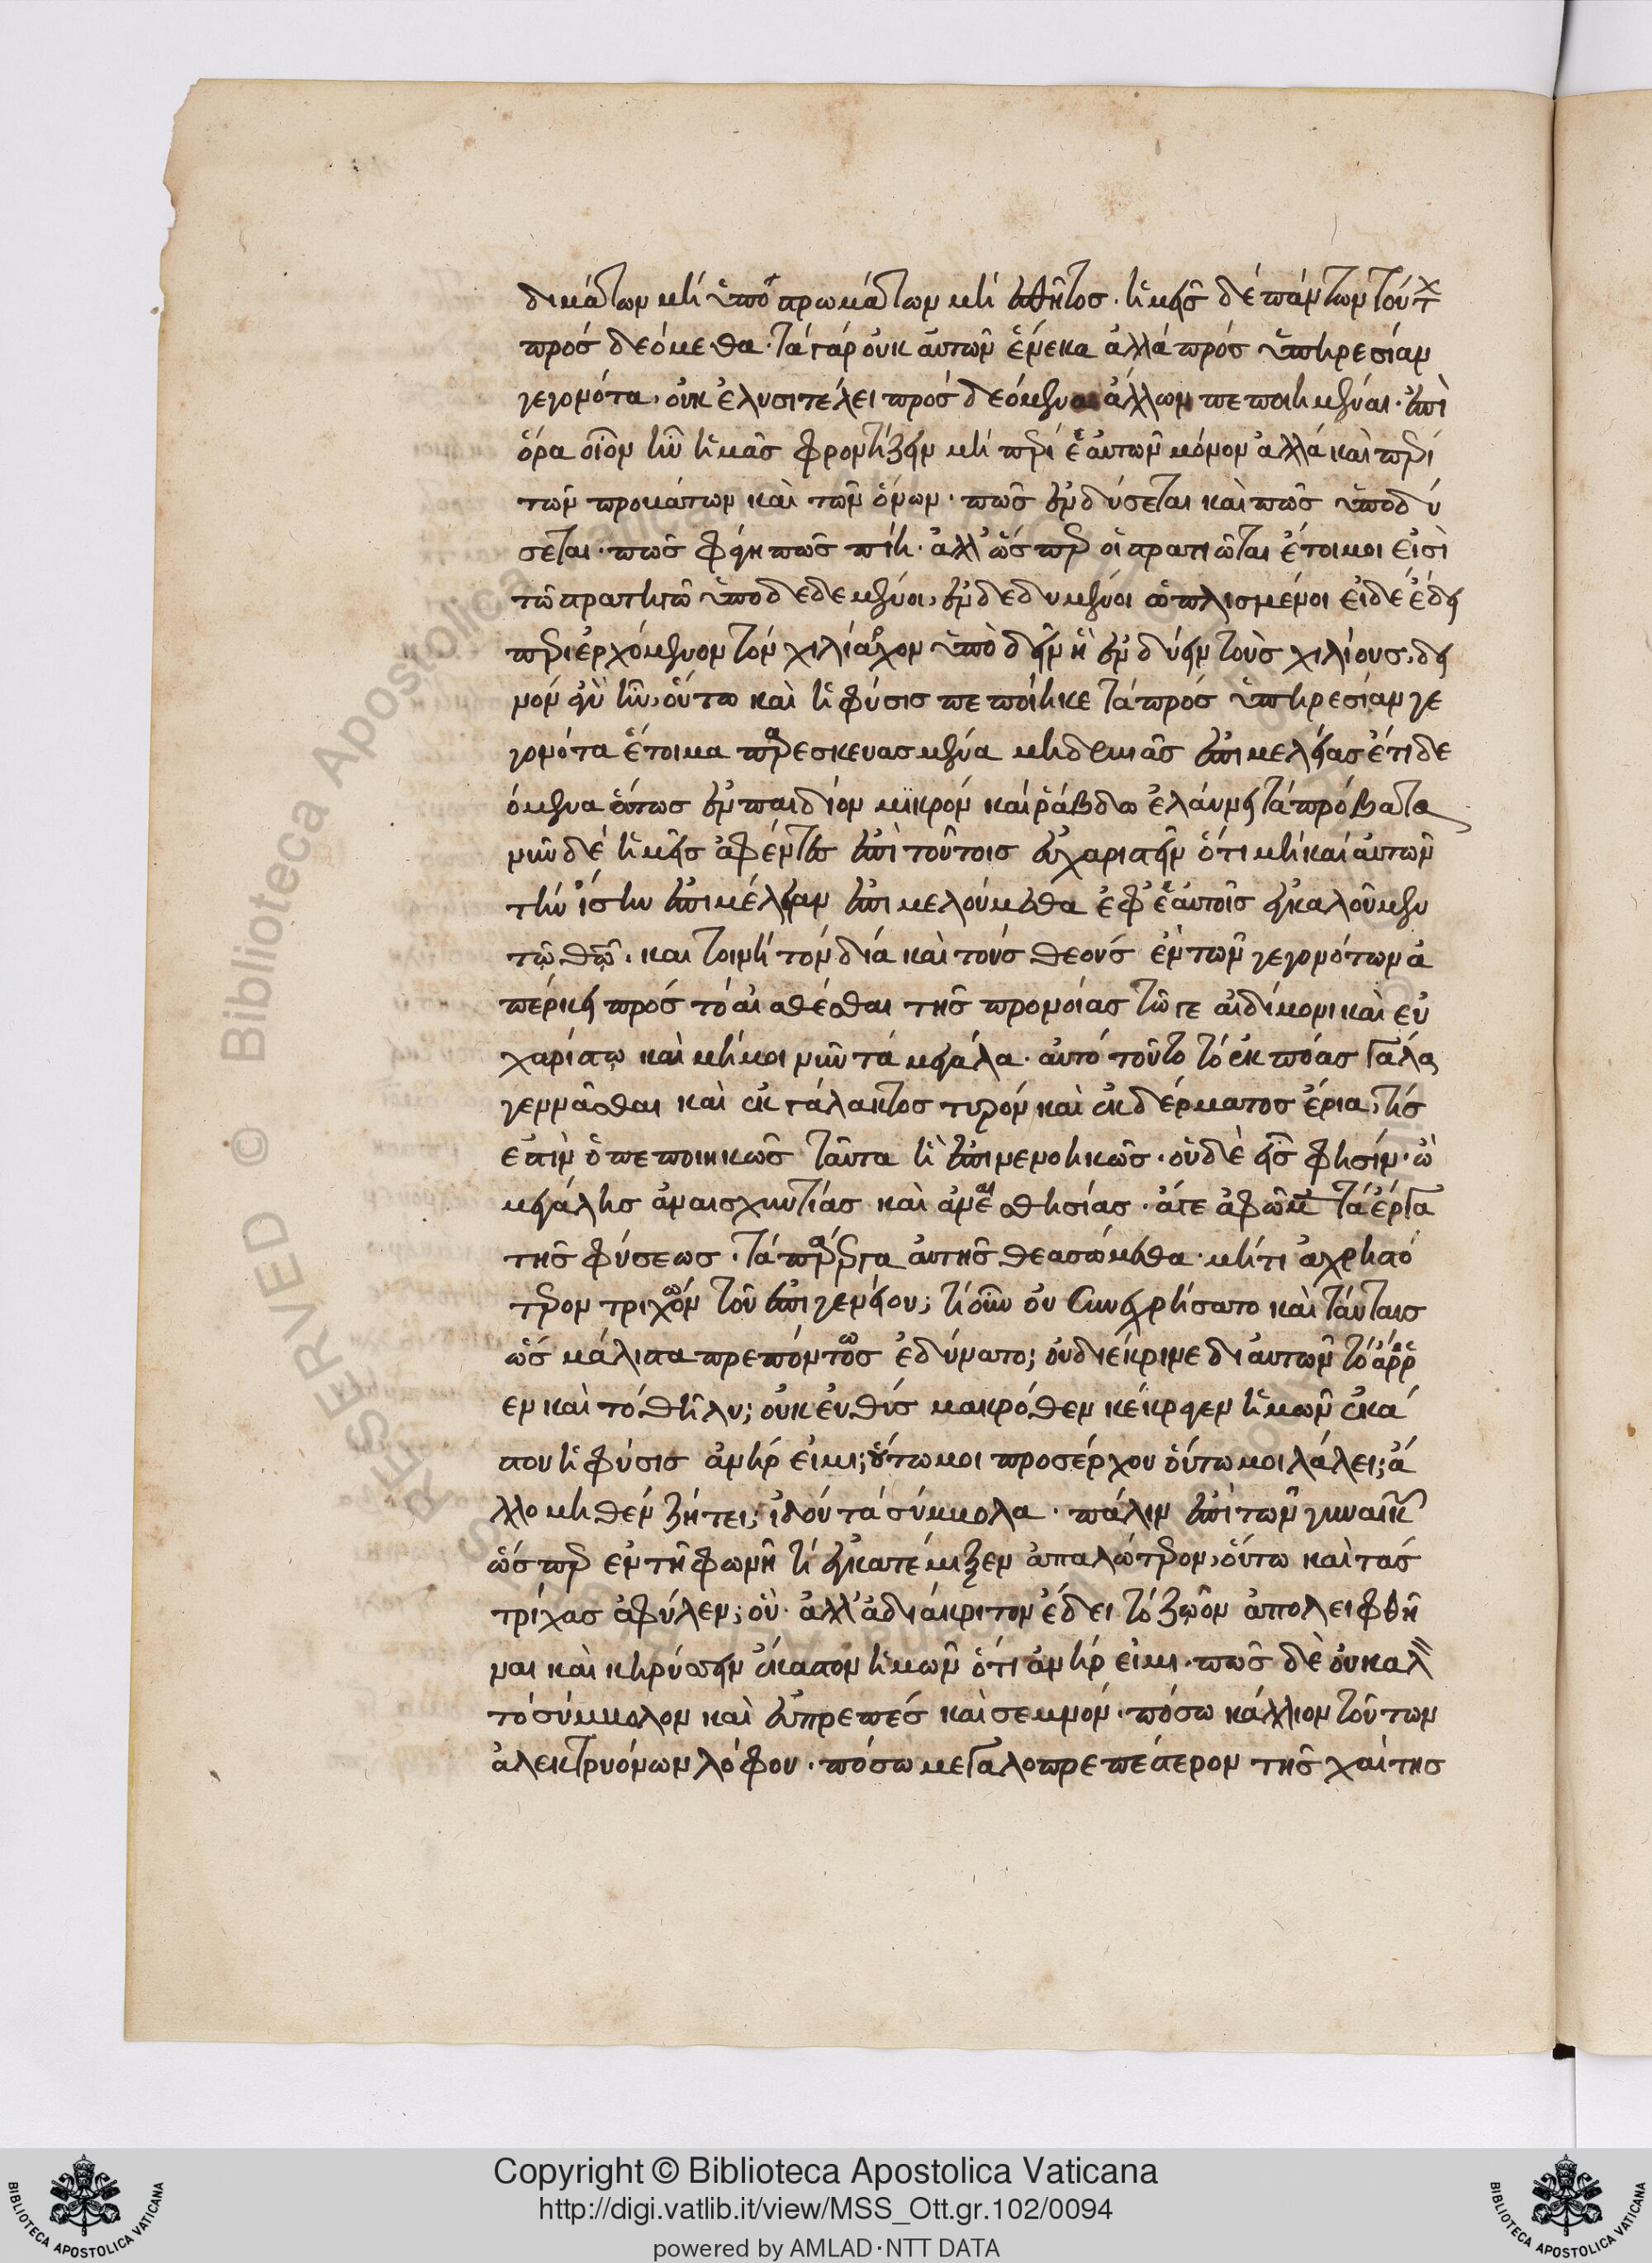 δημάτων μὴ ὑποστρωμάτων μὴ ἐσθῆτος. ἡμεῖς δὲ πάντων τούτ
προσδεόμεθα. τὰ γὰρ οὐκ αὐτῶν ἕνεκα ἀλλὰ πρὸς ὑπηρεσίαν
γεγονότα, οὐκ ἐλυσιτέλει προσδεόμενα ἄλλων πεποιημέναι. ἐπεὶ
ὅρα οἷον ἦν ἡμᾶς φροντίζειν μὴ περὶ ἑαυτῶν μόνον ἀλλὰ καὶ περὶ
τῶν προβάτων καὶ τῶν ὄνων. πῶς ἐνδύσεται καὶ πῶς ὑποδύ
σεται. πῶς φάγη πῶς πίη. ἀλλ' ὥσπερ οἱ στρατιῶται ἕτοιμοί εἰσι
τῶ στρατηγῶ ὑποδεδεμένοι, ἐνδεδυμένοι ὡπλισμένοι εἰ δὲ ἔδει
περιερχόμενον τὸν χιλίαρχον ὑποδεῖν ἢ ἐνδύειν τοὺς χιλίους, δει
νὸν ἂν ἦν, οὕτω καὶ ἡ φύσις πεποίηκε τὰ πρὸς ὑπηρεσίαν γε
γονότα ἕτοιμα παρεσκευασμένα μηδεμιᾶς ἐπιμελείας ἔτι δε
όμενα οὕτως ἓν παιδίον μικρὸν καὶ ῥάβδω ἐλαύνει τὰ πρόβατα
νῦν δὲ ἡμεῖς ἀφέντες ἐπὶ τούτοις εὐχαριστεῖν ὅτι μὴ καὶ αὐτῶν
τὴν ἴσην ἐπιμέλειαν ἐπιμελούμεθα ἐφ' ἑαυτοῖς ἐγκαλοῦμεν
τῷ θεῷ. καίτοι νὴ τὸν δία καὶ τοὺς θεοὺς ἓν τῶν γεγονότων ἀ
πέρκει πρὸς τὸ αἰσθέσθαι τῆς προνοίας τῶ γε αἰδήμονι καὶ εὐ
χαρίστῳ καὶ μή μοι νῦν τὰ μεγάλα. αὐτὸ τοῦτο τὸ ἐκ πόας γάλα
γεννᾶσθαι καὶ ἐκ γάλακτος τυρὸν καὶ ἐκ δέρματος ἔρια, τίς
ἐστιν ὁ πεποιηκὼς ταῦτα ἢ ἐπινενοηκώς. οὐδὲ εἷς φησίν. ὢ
μεγάλης ἀναισχυντίας καὶ ἀναισθησίας. ἄγε ἀφῶμεν τὰ ἔργα
τῆς φύσεως. τὰ πάρεργα αὐτῆς θεασώμεθα. μή τι ἀχρηστό
τερον τριχῶν τῶν ἐπὶ γενείου; τί οὖν οὐ συνεχρήσατο καὶ ταύταις
ὡς μάλιστα πρεπόντως ἐδύνατο; οὐ διέκρινε δι αὐτῶν τὸ ἄρρ
εν καὶ τὸ θῆλυ; οὐκ εὐθὺς μακρόθεν κέκραγεν ἡμῶν ἑκά
στου ἡ φύσις ἀνήρ εἰμι; οὕτω μοι προσέρχου οὕτω μοι λάλει; ἄ
λλο μηθὲν ζήτει; ἰδοὺ τὰ σύμβολα. πάλιν ἐπὶ τῶν γυναικῶν
ὥσπερ ἐν τῆ φωνῆ τί ἐγκατέμιξεν ἁπαλώτερον, οὕτω καὶ τὰς
τρίχας ἀφύλεν; οὔ. ἀλλ' ἀδιάκριτον ἔδει τὸ ζῷον ἀπολειφθῆ
ναι καὶ κηρύσσειν ἕκαστον ἡμῶν ὅτι ἀνήρ εἰμι. πῶς δὲ οὐ καλὸν
τὸ σύμβολον καὶ εὐπρεπὲς καὶ σεμνόν. πόσω κάλλιον τοῦ των
ἀλεκτρυόνων λόφου. πόσω μεγαλοπρεπέστερον τῆς χαίτης
Copyright © Biblioteca Apostolica Vaticana
http://digi.vatlib.it/view/MSS_Ott.gr.102/0094
powered by AMLAD·NTT DATA